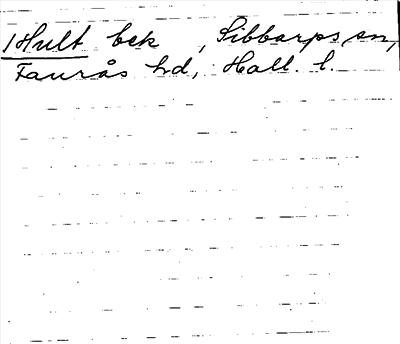 1 Hult bek , Sibbarps sn,
Faurås hd, Hall. l.